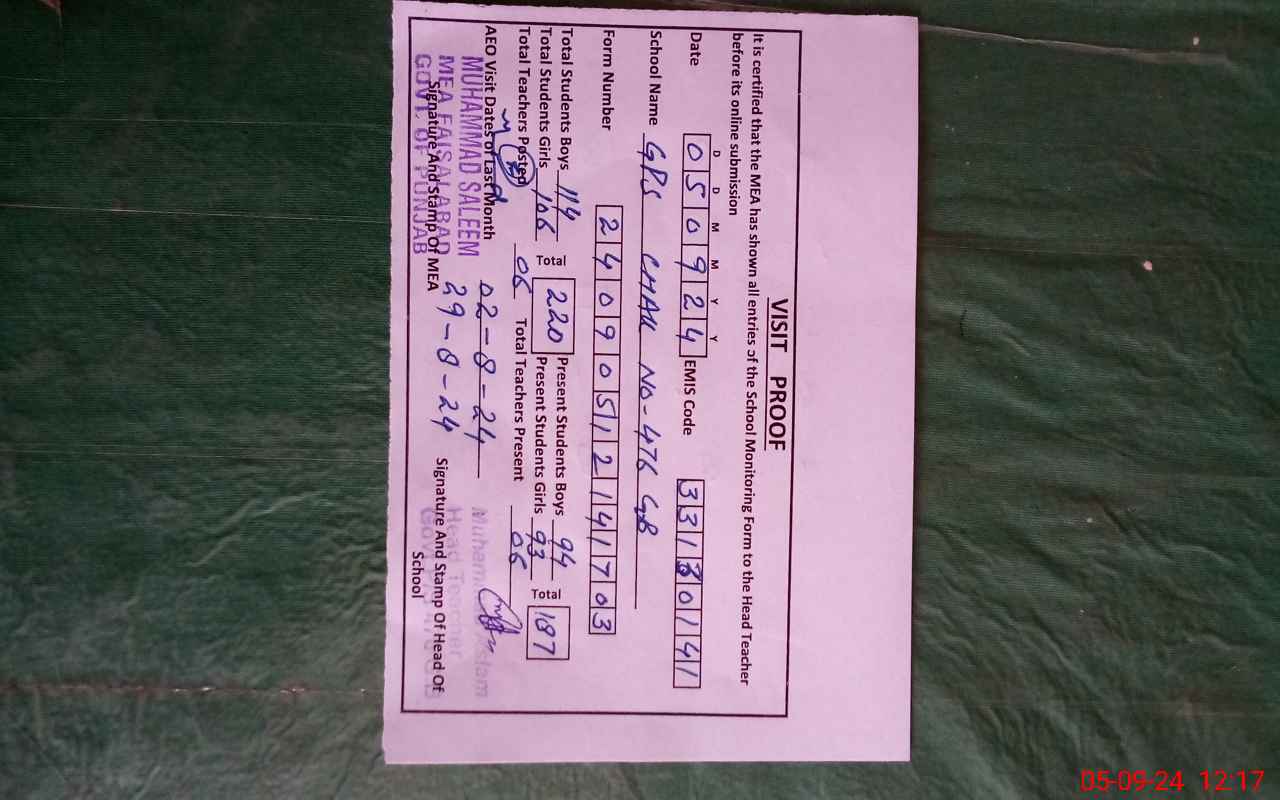 VISIT PROOF
It is certified that the MEA has shown all entries of the School Monitoring Form to the Head Teacher
before its online submission
D D M M Y Y
Date 050924 EMIS Code 33130141
School Name GPS CHAK NO-476 GB
Form Number 240905121703
Total Students Boys 114 Total 220 Present Students Boys 94 Total 187
Total Students Girls 106 Present Students Girls 93
Total Teachers Posted 06 Total Teachers Present 06
AEO Visit Dates of Last Month 02-8-24
29-8-24
MUHAMMAD SALEEM
MEA FAISALABAD
GOVT. OF PUNJAB
Signature And Stamp Of MEA
Head Teacher
Signature And Stamp Of Head Of
School
05-09-24 12:17